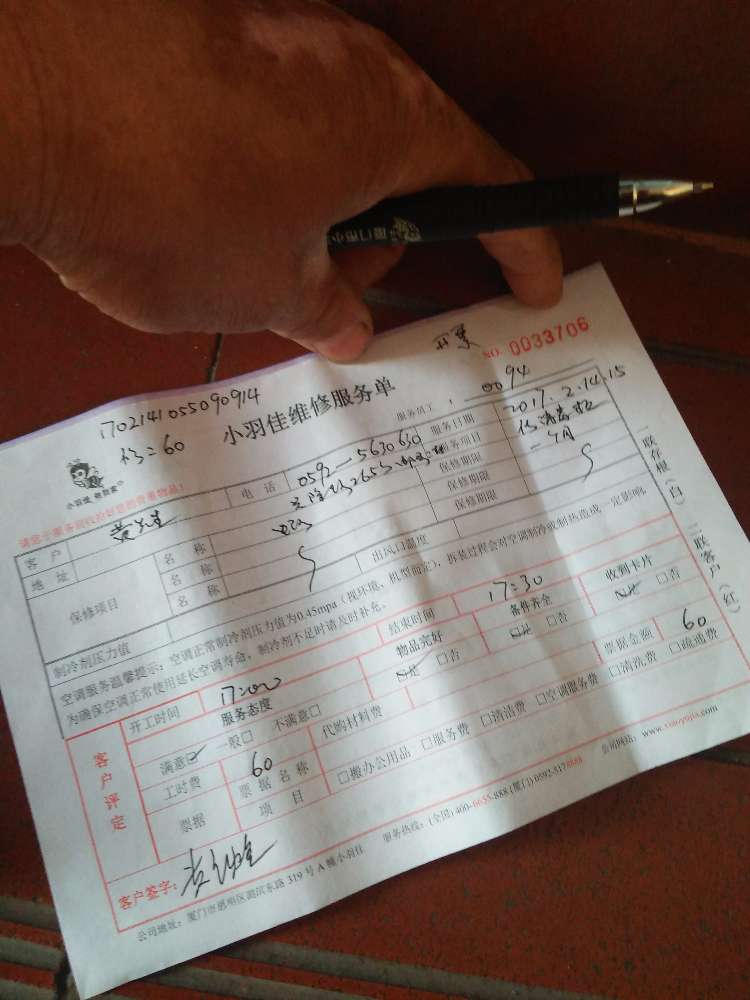 NO. 0033706
1702141055090914
修=60
小羽佳维修服务单
服务员工： 0094
小羽佳 帮到家
请您于服务前收拾好您的贵重物品！
客户 黄先生 电话 0592-5630630 服务日期 2017.2.14.15
地址 服务项目
保修项目 名称 保修期限 一个月
名称 保修期限
名称 保修期限
制冷剂压力值 出风口温度
空调服务温馨提示：空调正常制冷剂压力值为0.45mpa（视环境、机型而定），拆装过程会对空调制冷或制热造成一定影响
为确保空调正常使用延长空调寿命，制冷剂不足时请及时补充。
一联存根（白） 二联客户（红）
客户评定
开工时间 17:00 结束时间 17:30
服务态度 物品完好 备件齐全 收到卡片
满意☑ 一般□ 不满意□ ☑是 □否 □是 □否 □是 □否
工时费 60 代购材料费 票据金额 60
票据 票据名称
项目 □搬办公用品 □服务费 □清洁费 □空调服务费 □清洗费 □疏通费
客户签字：
公司地址：厦门市思明区湖滨东路319号A幢小羽佳 服务热线：(全国) 400-6655-888 (厦门) 0592-5178688 公司网站：www.xiaoyujia.com